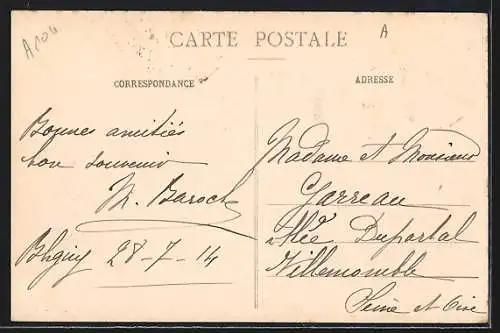 A104
A
CARTE POSTALE
CORRESPONDANCE
ADRESSE
Bonnes amitiés
bon souvenir
M. Baroch
28-7-14
Madame et Monsieur
Garreau
Allée Duportal
Villemomble
Seine et Oise